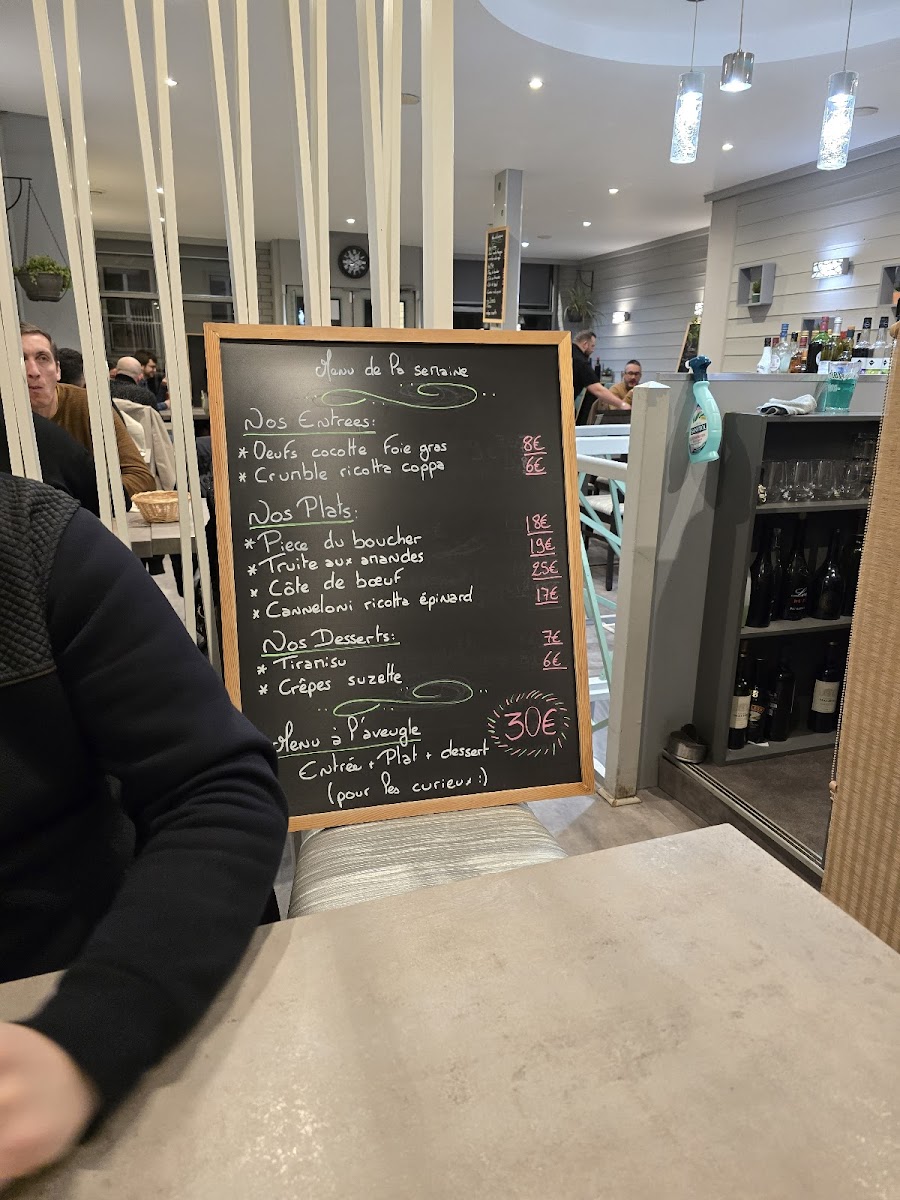 Menu de la semaine
Nos Entrees:
* Oeufs cocotte Foie gras 8€
* Crumble ricotta coppa 6€
Nos Plats:
* Piece du boucher 18€
* Truite aux amandes 19€
* Côte de bœuf 25€
* Canneloni ricotta épinard 17€
Nos Desserts:
* Tiramisu 7€
* Crêpes suzette 6€
Menu à l'aveugle 30€
Entrée + Plat + dessert
(pour les curieux :)